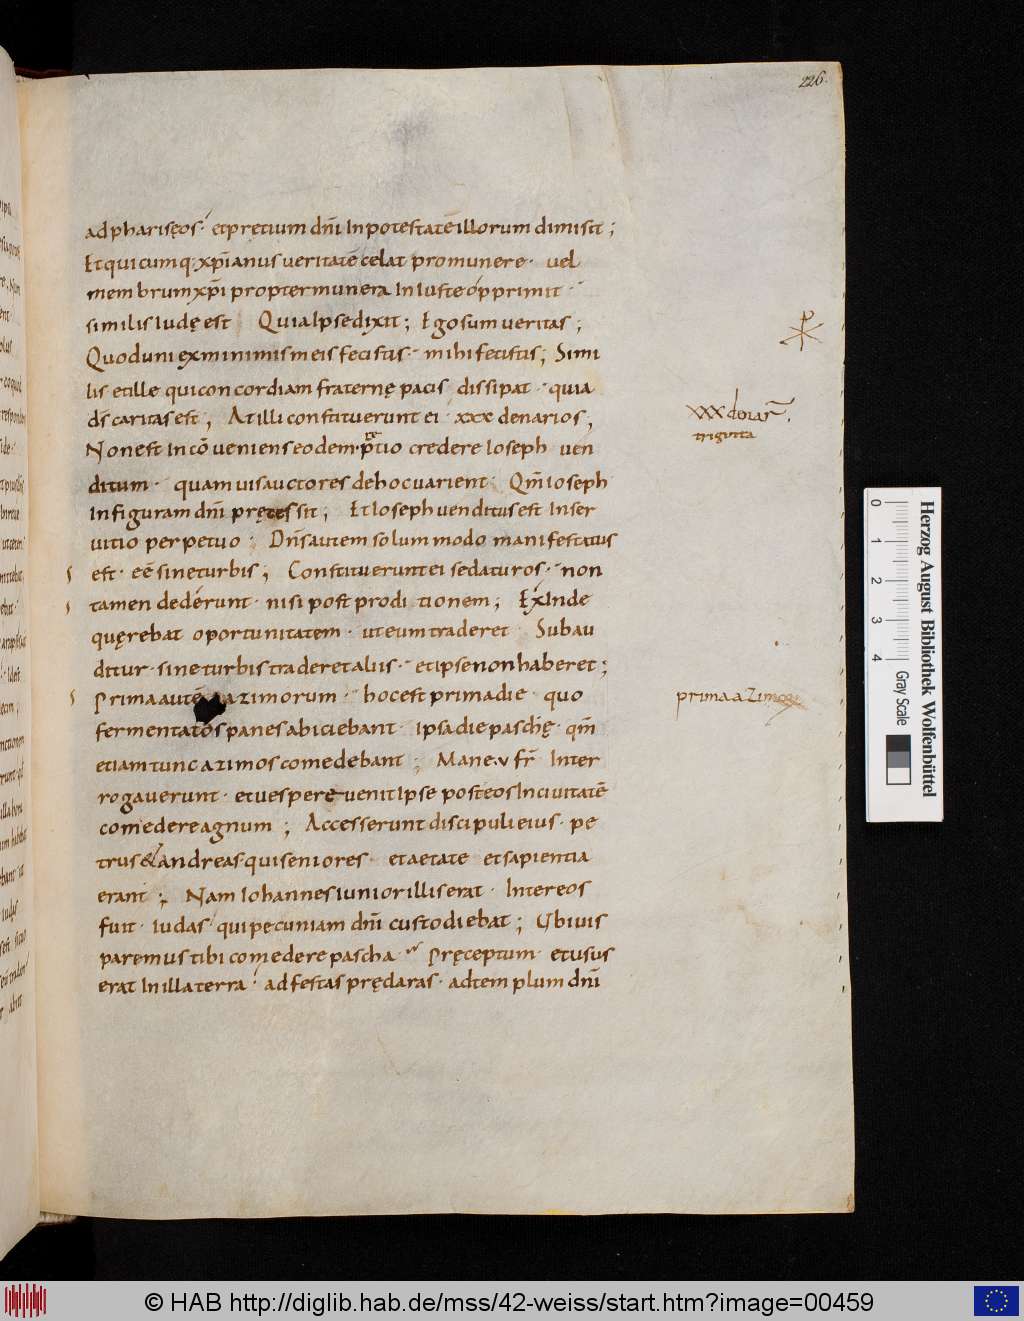 226.
ad phariseos· et pretium dn̄i In potestatē illorum dimisit;
Et quicumq; xp̄ianus veritatē celat pro munere· vel
membrum xp̄i propter munera In iuste opprimit·
similis Iudę est Quia Ipse dixit; Ego sum veritas;
Quod uni ex minimis meis fecistis· mihi fecistis; Simi
lis et ille qui concordiam fraternę pacis dissipat· quia
ds̄ caritas est; At illi constituerunt ei· xxx denarios;
Non est In cō veniens eodem p̄tio credere Ioseph ven
ditum· quam vis auctores de hoc varient· Qm̄ Ioseph
In figuram dn̄i pręcessit; Et Ioseph venditus est In ser
vitio perpetuo; Dn̄s autem solum modo manifestatus
est· eē sine turbis; Constituerunt ei se daturos· non
tamen dederunt· nisi post proditionem; Ex Inde
quęrebat oportunitatem· ut eum traderet Subau
ditur· sine turbis traderet aliis· et ipse non haberet;
Prima autē azimorum· hoc est prima die· quo
fermentatos panes abiciebant· ipsa die paschę· qm̄
etiam tunc azimos comedebant; Mane v fr̄ Inter
rogaverunt· et vespere venit Ipse post eos In civitatē
comedere agnum; Accesserunt discipuli eius· pe
trus & andreas· qui seniores· et aetate et sapientia
erant; Nam Iohannes iunior illis erat· Inter eos
fuit· iudas· qui pecuniam dn̄i custodiebat; Ubi vis
paremus tibi comedere pascha Pręceptum· et usus
erat In illa terra· ad festas pręclaras· ad templum dn̄i
triginta
prima azimoꝝ
Herzog August Bibliothek Wolfenbüttel
0 1 2 3 4
Gray Scale
© HAB http://diglib.hab.de/mss/42-weiss/start.htm?image=00459